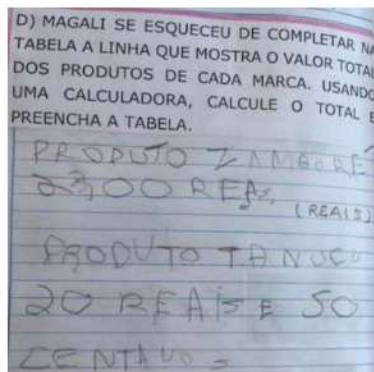 D) MAGALI SE ESQUECEU DE COMPLETAR NA
TABELA A LINHA QUE MOSTRA O VALOR TOTAL
DOS PRODUTOS DE CADA MARCA. USANDO
UMA CALCULADORA, CALCULE O TOTAL E
PREENCHA A TABELA.
PRODUTO ZAMBORÉ
23,00 REAS,
(REAIS)
PRODUTO
20 REAIS E 50
CENTAVOS